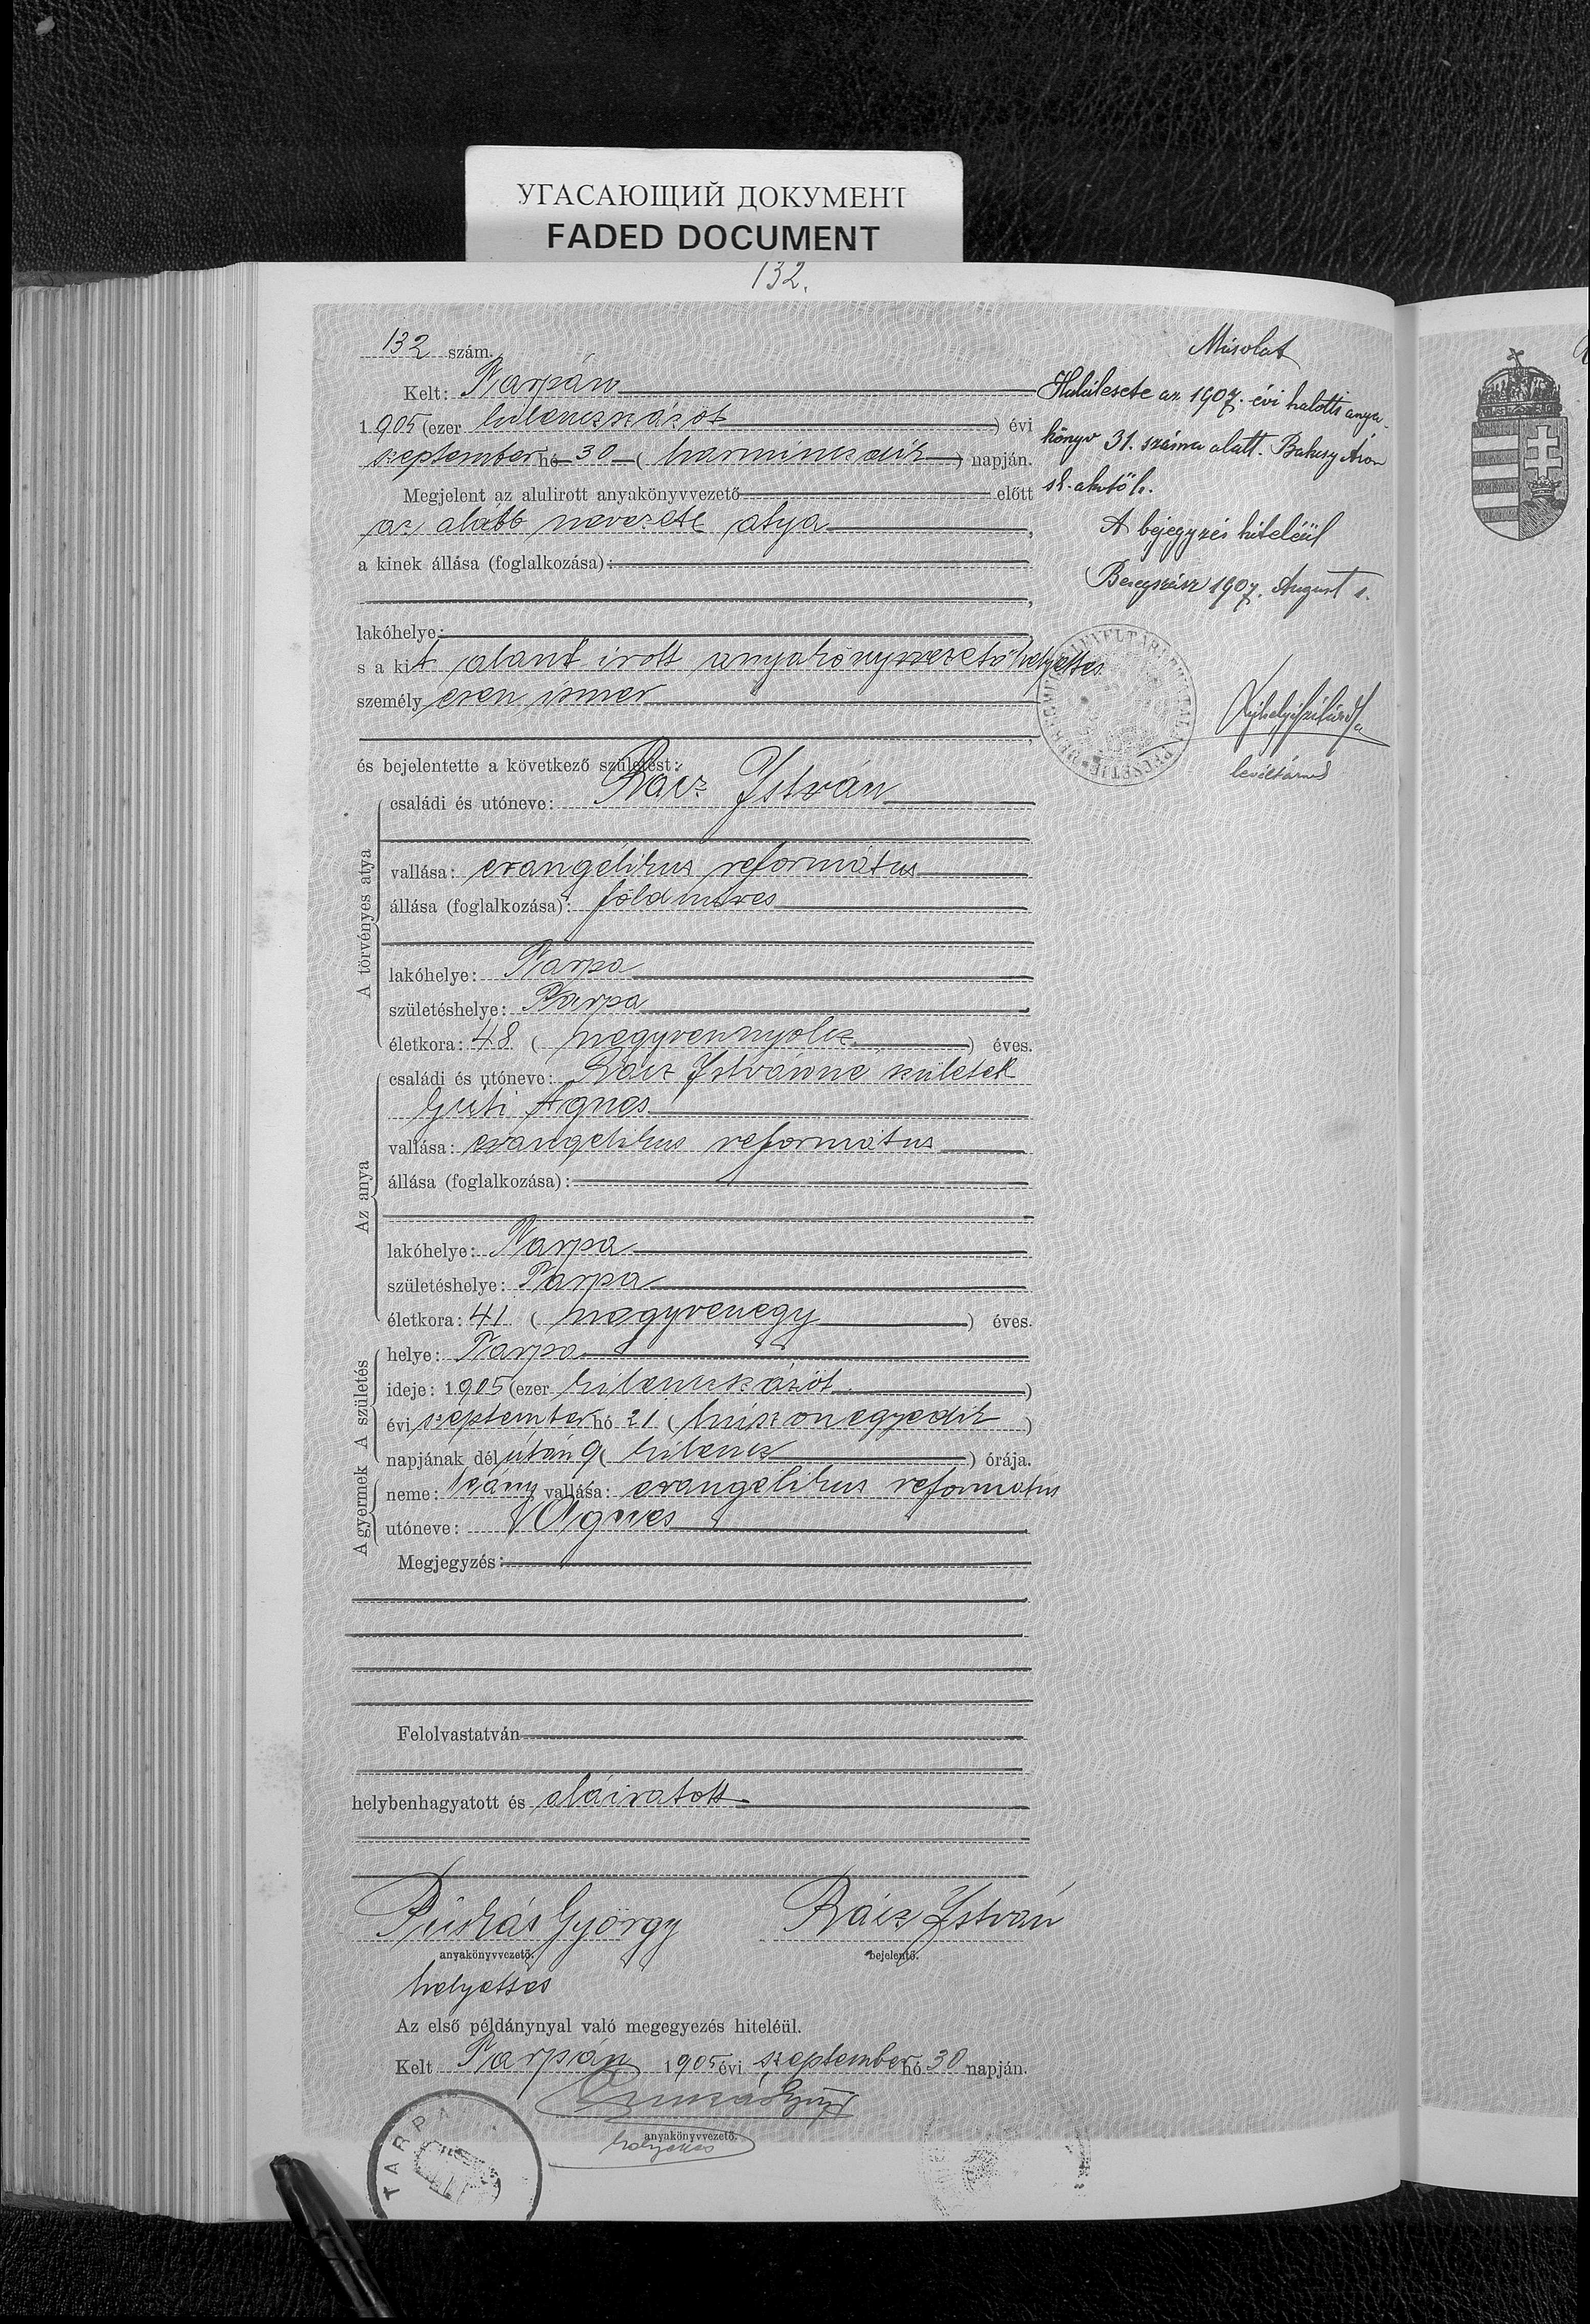 УГАСАЮЩИЙ ДОКУМЕНТ
FADED DOCUMENT
132.
132 szám.
Kelt: Tarpán
1905 (ezer kilenczszázöt) évi
szeptember hó 30 (harminczadik) napján.
Megjelent az alulirott anyakönyvvezető előtt
az alább nevezett atya,
a kinek állása (foglalkozása):
lakóhelye:
s a kit alant irott anyakönyvvezető helyettes
személyesen ismer
és bejelentette a következő születést:
A törvényes atya
családi és utóneve: Rácz István
vallása: evangélikus református
állása (foglalkozása): földmives
lakóhelye: Tarpa
születéshelye: Tarpa
életkora: 48 (negyvennyolcz) éves.
Az anya
családi és utóneve: Rácz Istvánné született
Guti Ágnes
vallása: evangelikus református
állása (foglalkozása):
lakóhelye: Tarpa
születéshelye: Tarpa
életkora: 41 (negyvenegy) éves.
A születés
helye: Tarpa
ideje: 1905 (ezer kilenczszázöt)
évi szeptember hó 21 (huszonegyedik)
napjának délután 9 (kilencz) órája.
A gyermek
neme: leány vallása: evangelikus református
utóneve: Ágnes
Megjegyzés:
Felolvastatván
helybenhagyatott és aláiratott
György Rácz István
anyakönyvvezető. bejelentő.
helyettes
Az első példánynyal való megegyezés hiteléül.
Kelt Tarpán 1905 évi szeptember hó 30 napján.
anyakönyvvezető.
helyettes
TARPA
Másolat
Halálesete az 1907. évi halotti anya-
könyv 31. száma alatt. Áron
s.k. aktök.
A bejegyzés hiteléül
Beregszász 1907. August 1.
levéltárnok